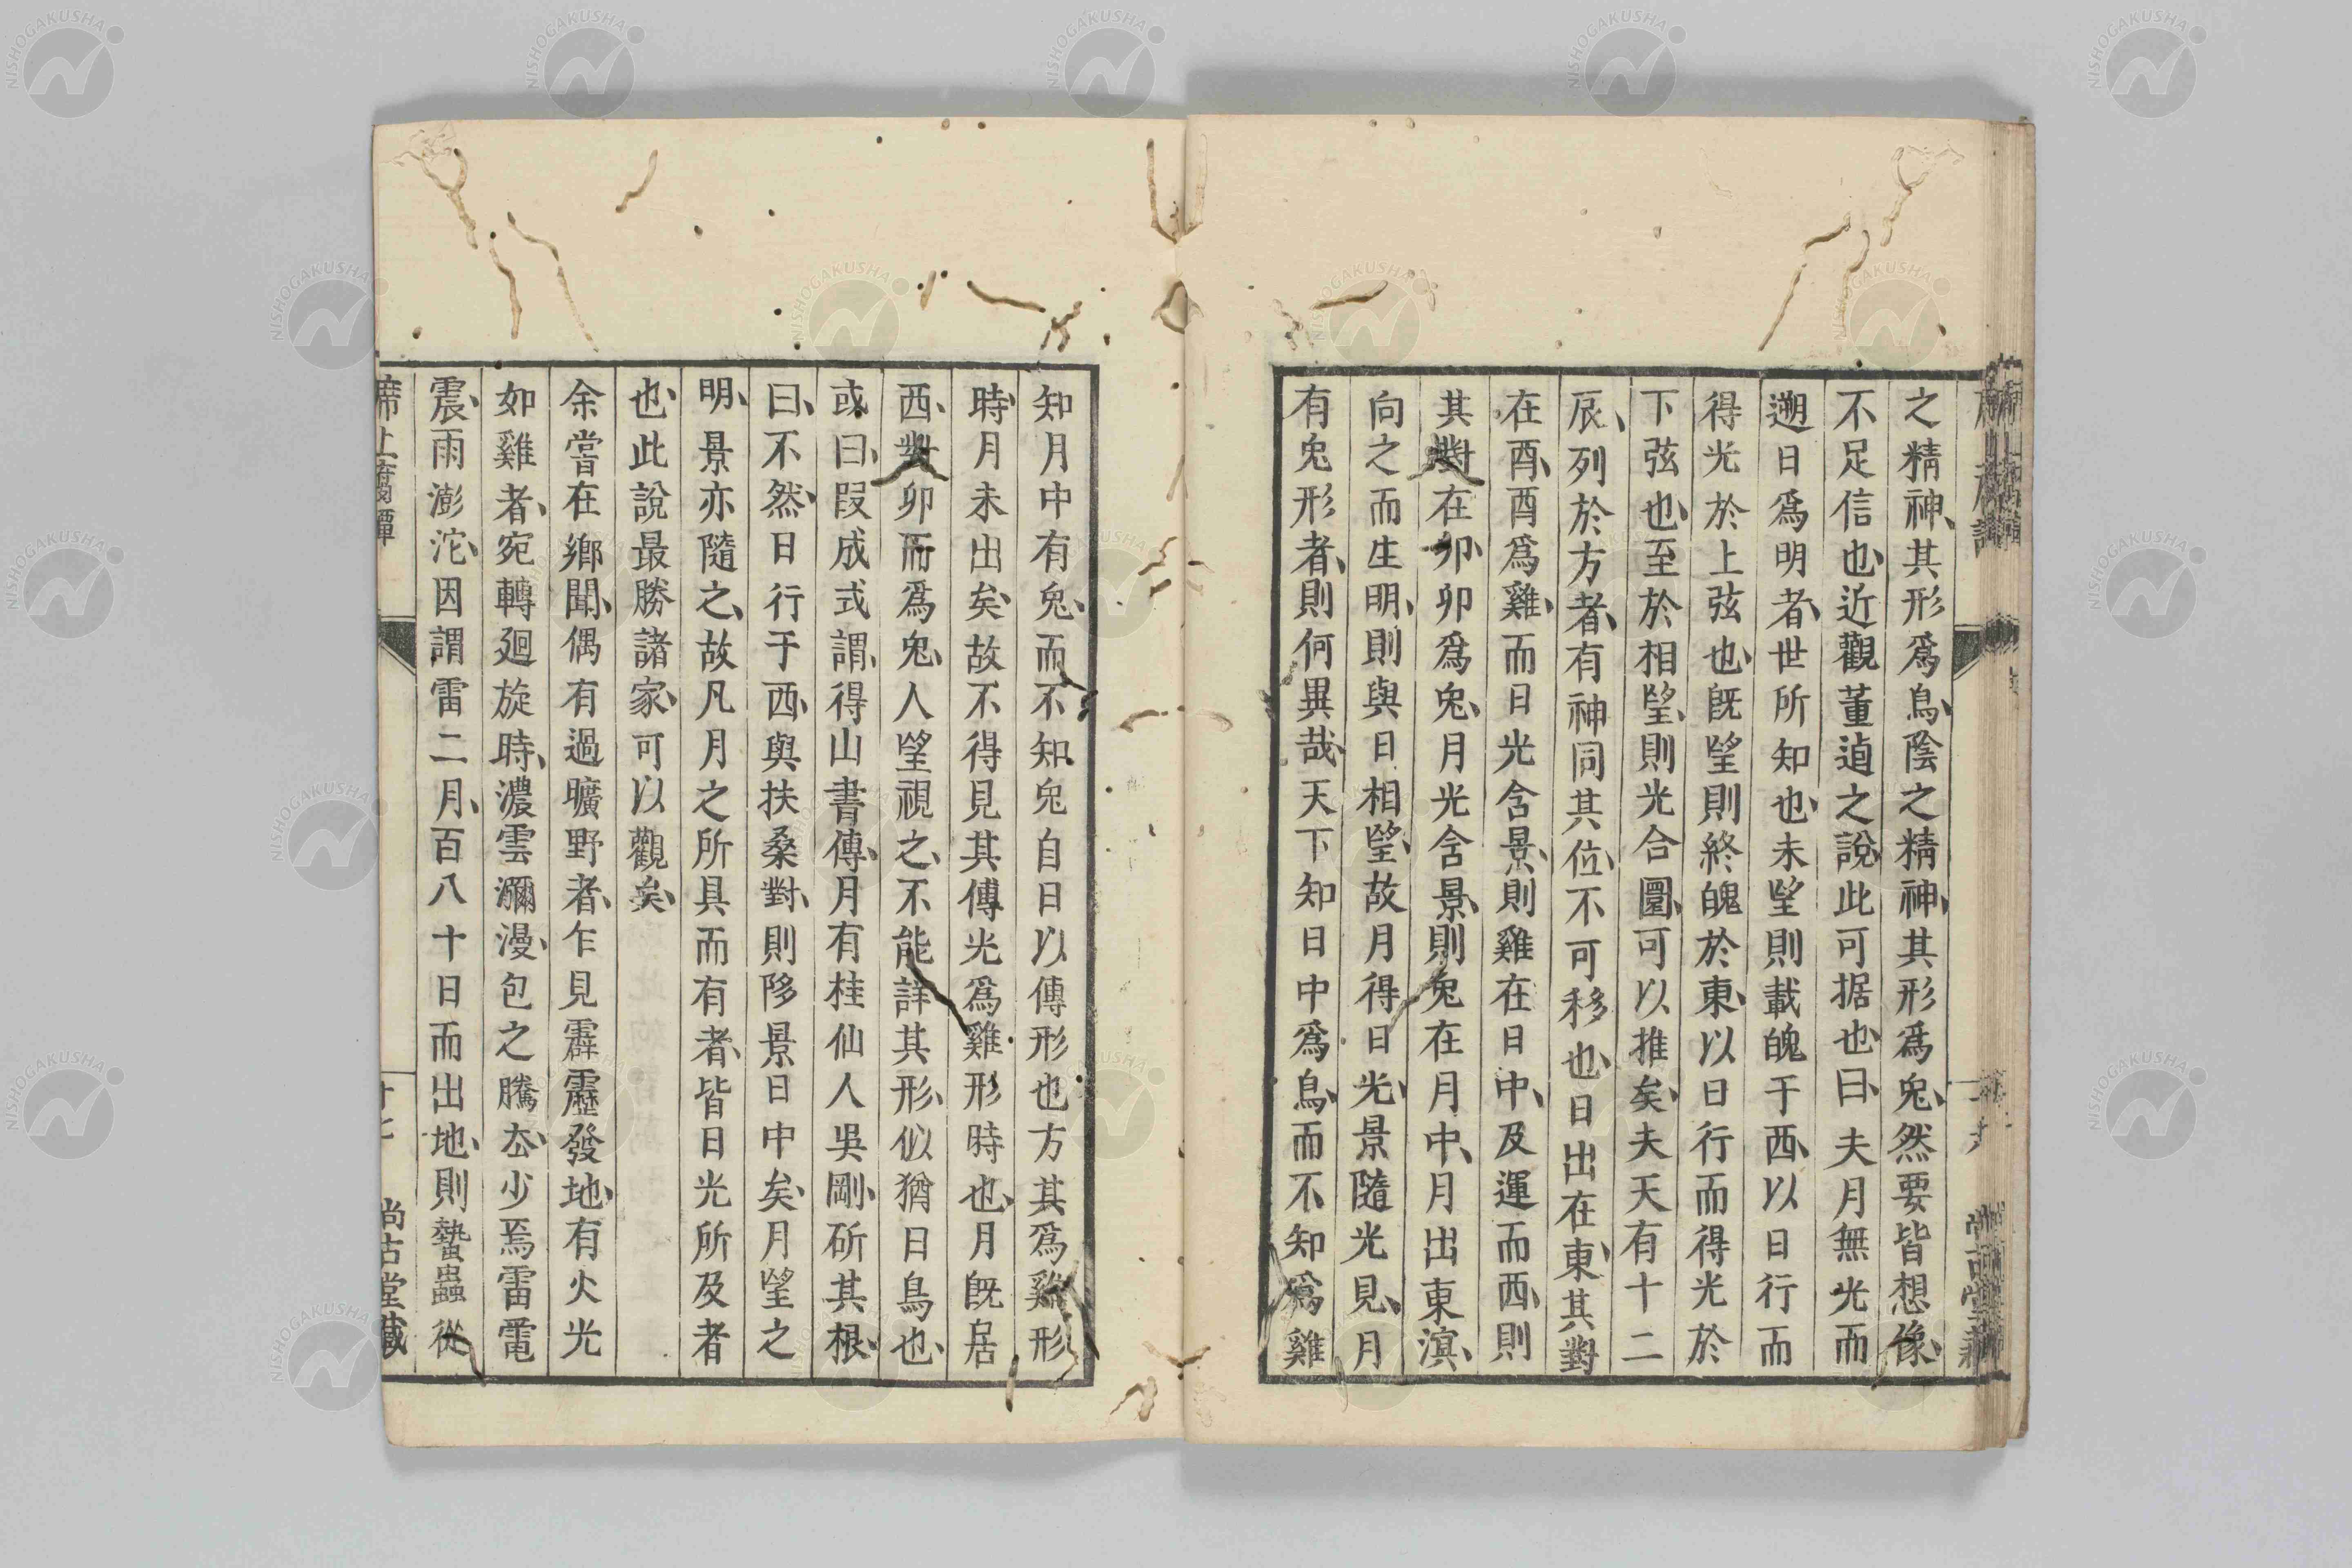 之精神、其形爲烏、陰之精神、其形爲兔、然要皆想像、
不足信也、近觀董逌之說、此可据也、曰、夫月無光而
遡日爲明者、世所知也、未望則載魄于西、以日行而
得光於上弦也、旣望則終魄於東、以日行而得光於
下弦也、至於相望、則光合圓、可以推矣、夫天有十二
辰、列於方者、有神同其位、不可移也、日出在東、其對
在酉、酉爲雞、而日光含景、則雞在日中、及運而西、則
其對在卯、卯爲兔、月光含景、則兔在月中、月出東溟、
向之而生明、則與日相望、故月得日光、景隨光見、月
有兔形者、則何異哉、天下知日中爲烏、而不知爲雞
知月中有兔、而不知兔自日以傳形也方其爲雞形
時、月未出矣、故不得見其傳光爲雞形時也、月旣居
西、對卯而爲兔、人望視之、不能詳其形、似猶日烏也、
或曰、段成式謂、得山書傳、月有桂仙人吳剛、斫其根、
曰、不然、日行于西、與扶桑對、則移景日中矣、月望之
明、景亦隨之、故凡月之所具而有者、皆日光所及者
也、此說最勝諸家、可以觀矣、
余嘗在鄉聞、偶有過曠野者、乍見霹靂發地、有火光
如雞者、宛轉廻旋時、濃雲瀰漫、包之騰去、少焉雷電
震、雨澎沱、因謂雷二月、百八十日而出地、則蟄蟲從
席上腐譚
十七
尚古堂藏
NISHOGAKUSHA